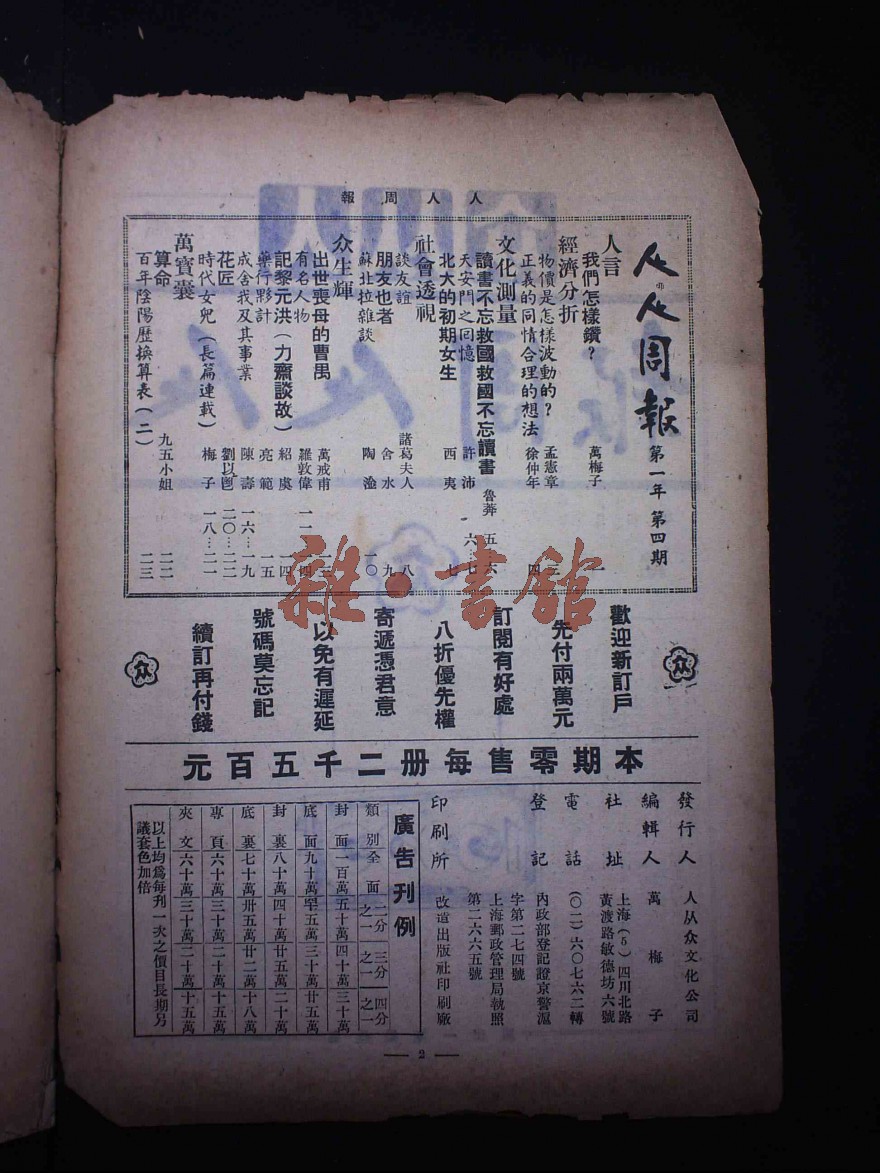 人人周報
人人周報
第一年 第四期
人言
我們怎樣鑽? 萬梅子 一
經濟分折
物價是怎樣波動的? 孟憲章 三
正義的同情合理的想法 徐仲年 四
文化測量
讀書不忘救國救國不忘讀書 魯莽 五…六
天安門之回憶 許沛 六…七
北大的初期女生 西夷 七
社會透視
談友誼 諸葛夫人 八
朋友也者 舍水 九
蘇北拉雜談 陶淦 一〇
众生輝
出世喪母的曹禺 萬戒甫
有名人物 羅敦偉
記黎元洪(力齋談故) 紹虞 一四
藥行夥計 亮範 一五
成舍我及其事業 陳壽 一六…一九
花匠 劉以鬯 二〇…二二
時代女兒(長篇連載) 梅子 一八…二一
萬寶囊
算命 九五小姐 二二
百年陰陽歷換算表(二) 二三
雜·書館
众
歡迎新訂戶
先付兩萬元
訂閱有好處
八折優先權
寄遞憑君意
以免有遲延
號碼莫忘記
續訂再付錢
众
本期零售每册二千五百元
發行人 人从众文化公司
編輯人 萬梅子
社址 上海(5)四川北路
黃渡路敏德坊六號
電話 (〇二)六〇七六二轉
登記 內政部登記證京警滬
字第二七四號
上海郵政管理局執照
第二六六五號
印刷所 改造出版社印刷廠
廣告刊例
類別 全面 二分之一 三分之一 四分之一
封面 一百萬 五十萬 四十萬 三十萬
底面 九十萬 罕五萬 三十萬 廿五萬
封裏 八十萬 四十萬 廿五萬 二十萬
底裏 七十萬 卅五萬 廿二萬 十八萬
專頁 六十萬 三十萬 二十萬 十五萬
夾文 六十萬 三十萬 二十萬 十五萬
以上均爲每刊一次之價目長期另
議套色加倍
— 2 —